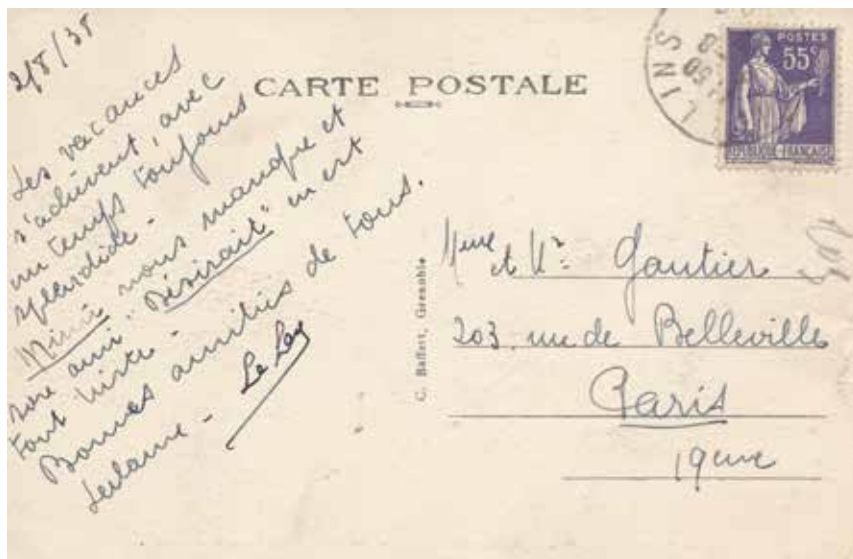 2/8/38
Les vacances
s'achèvent avec
un temps toujours
splendide.
Mimi nous manque et
son ami "Désirait" en est
tout triste.
Bonnes amitiés de tous.
CARTE POSTALE
POSTES
55c
REPUBLIQUE-FRANÇAISE
LLINS
C. Baffert, Grenoble
Mme et Mr Gautier
203 rue de Belleville
Paris
19eme